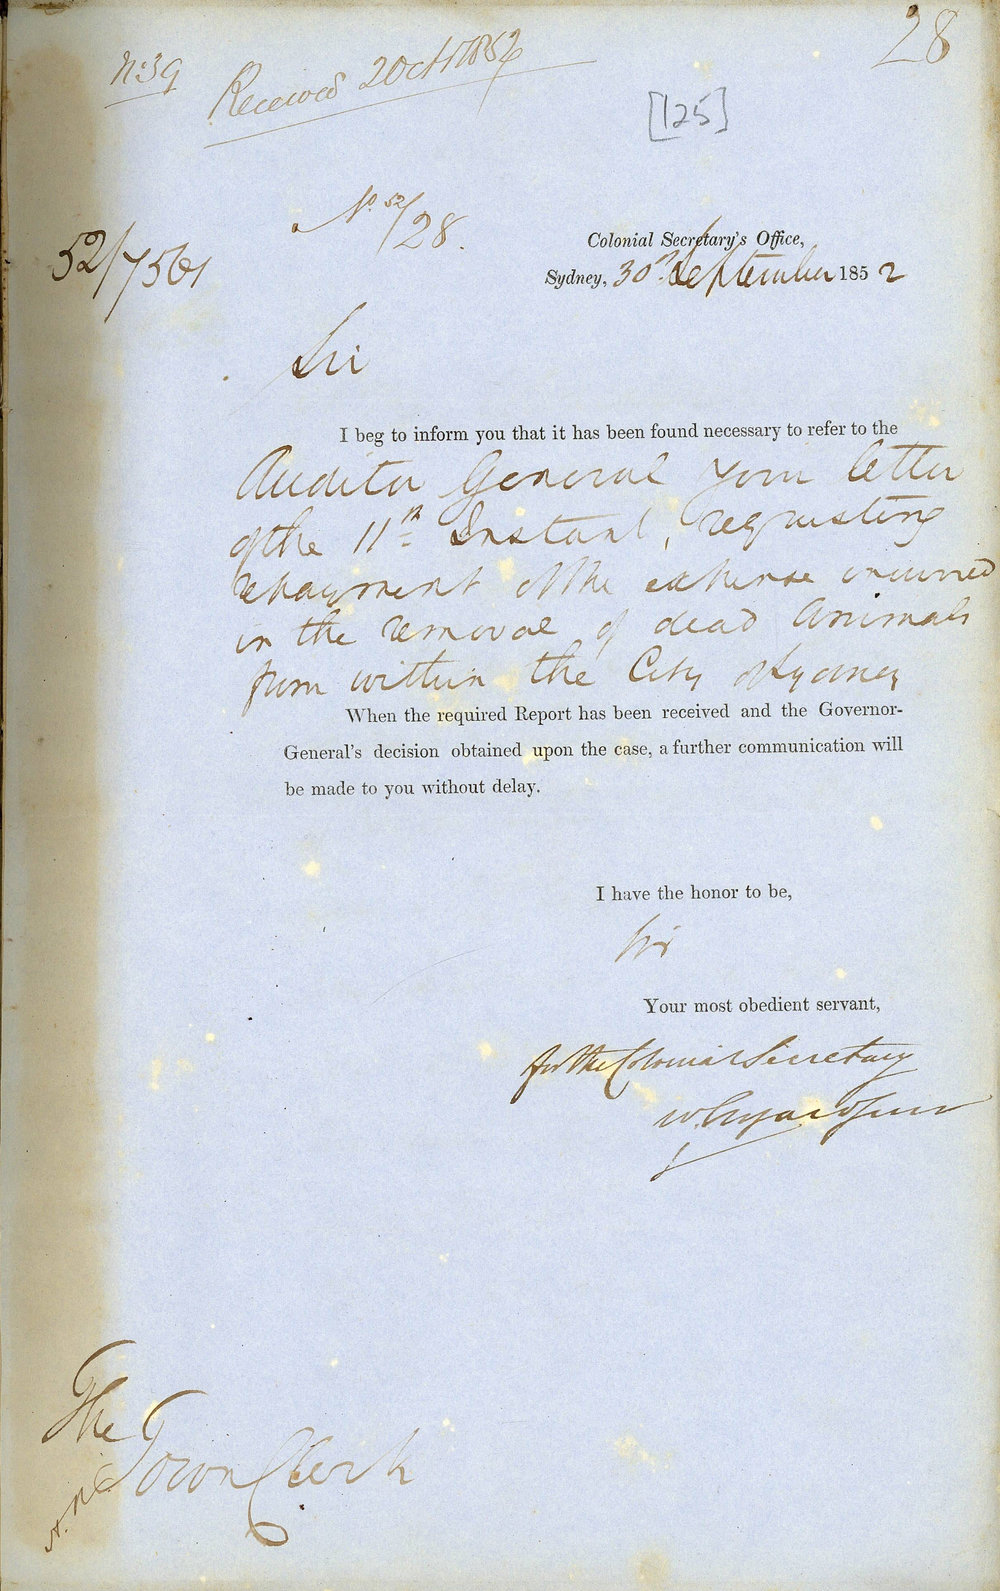 28
No. 39
Received 2 Oct 1852
[125]
No. 52/28.
52/7561
Colonial Secretary's Office,
Sydney, 30th September 1852
Sir
I beg to inform you that it has been found necessary to refer to the
Auditor General your letter
of the 11th Instant, requesting
repayment of the expense incurred
in the removal of dead Animals
from within the City of Sydney
When the required Report has been received and the Governor-
General's decision obtained upon the case, a further communication will
be made to you without delay.
I have the honor to be,
Sir
Your most obedient servant,
for the Colonial Secretary
W. Elyard Junr
The
Town Clerk